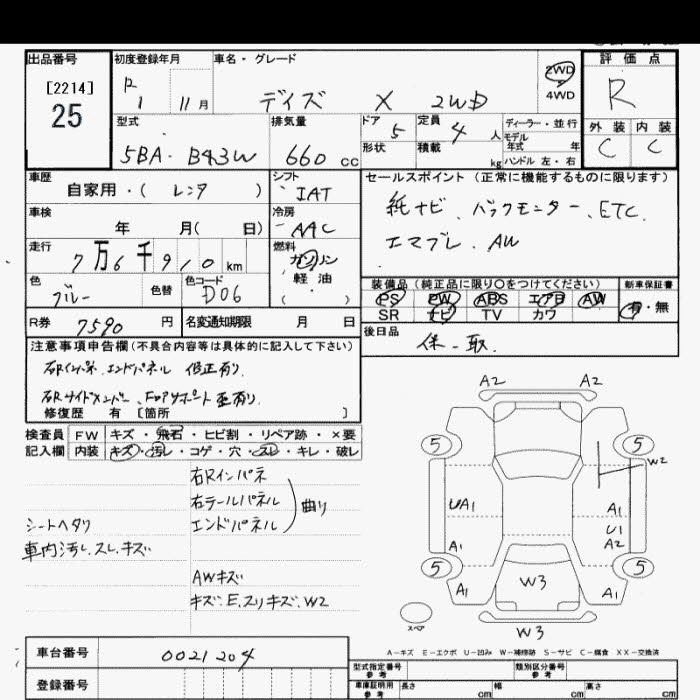 出品番号
[2214]
25
初度登録年月
R
1 11月
車名・グレード
デイズ X 2WD
2WD
4WD
評価点
R
外装 内装
C C
型式
5BA・B43W
排気量
660 cc
ドア 5
形状
定員 4 人
積載 kg
ディーラー・並行
モデル
年式 年
ハンドル 左・右
車歴
自家用・( レンタ )
シフト
IAT
車検
年 月( 日)
冷房
AAC
走行
7万6千910km
燃料
ガソリン
軽油
( )
色
ブルー
色替
色コード
D06
R券 7590 円
名変通知期限 月 日
セールスポイント(正常に機能するものに限ります)
純ナビ、バックモニター、ETC、
エマブレ、AW
装備品(純正品に限り○をつけてください)
PS PW ABS エアB AW
SR ナビ TV カワ
新車保証書
有・無
後日品
保一取
注意事項申告欄(不具合内容等は具体的に記入して下さい)
右Rインパネ、エンドパネル 修正有り、
右Rサイドメンバー、Fコアサポート歪有り、
修復歴 有 [箇所 ]
検査員
記入欄
FW キズ・飛石・ヒビ割・リペア跡・×要
内装 キズ・汚レ・コゲ・穴・スレ・キレ・破レ
右Rインパネ
右テールパネル
エンドパネル
曲り
シートヘタリ
車内汚レ、スレ、キズ
AWキズ
キズ、E、スリキズ、W2
A2 A2
5 5
W2
UA1 A1
U1
A1 A2
5 5
A1 A1
W3
スペア
W3
A−キズ E−エクボ U−凹み W−補修跡 S−サビ C−腐食 XX−交換済
車台番号 0021204
登録番号
型式指定番号
参考
類別区分番号
参考
車庫証明用
参考
長さ cm 幅 cm 高さ cm